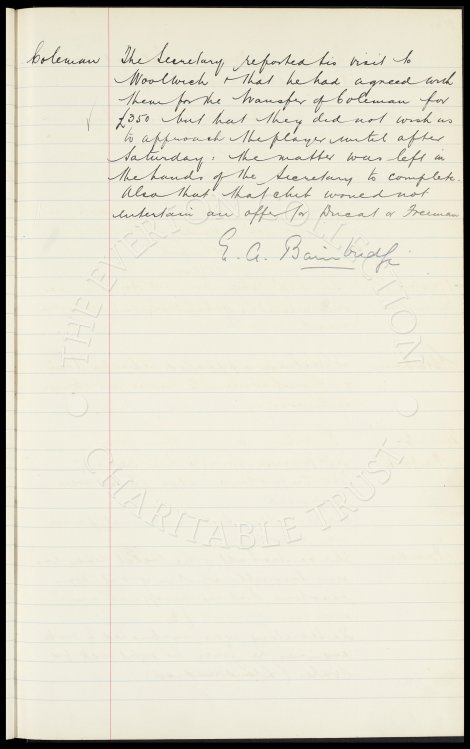 Coleman The Secretary reported his visit to
Woolwich & that he had agreed with
them for the transfer of Coleman for
£350 but that they did not wish us
to approach the player until after
Saturday: the matter was left in
the hands of the Secretary to complete.
Also that that club would not
entertain an offer for Ducat or Freeman
E. A. Bainbridge
THE EVERTON COLLECTION
CHARITABLE TRUST